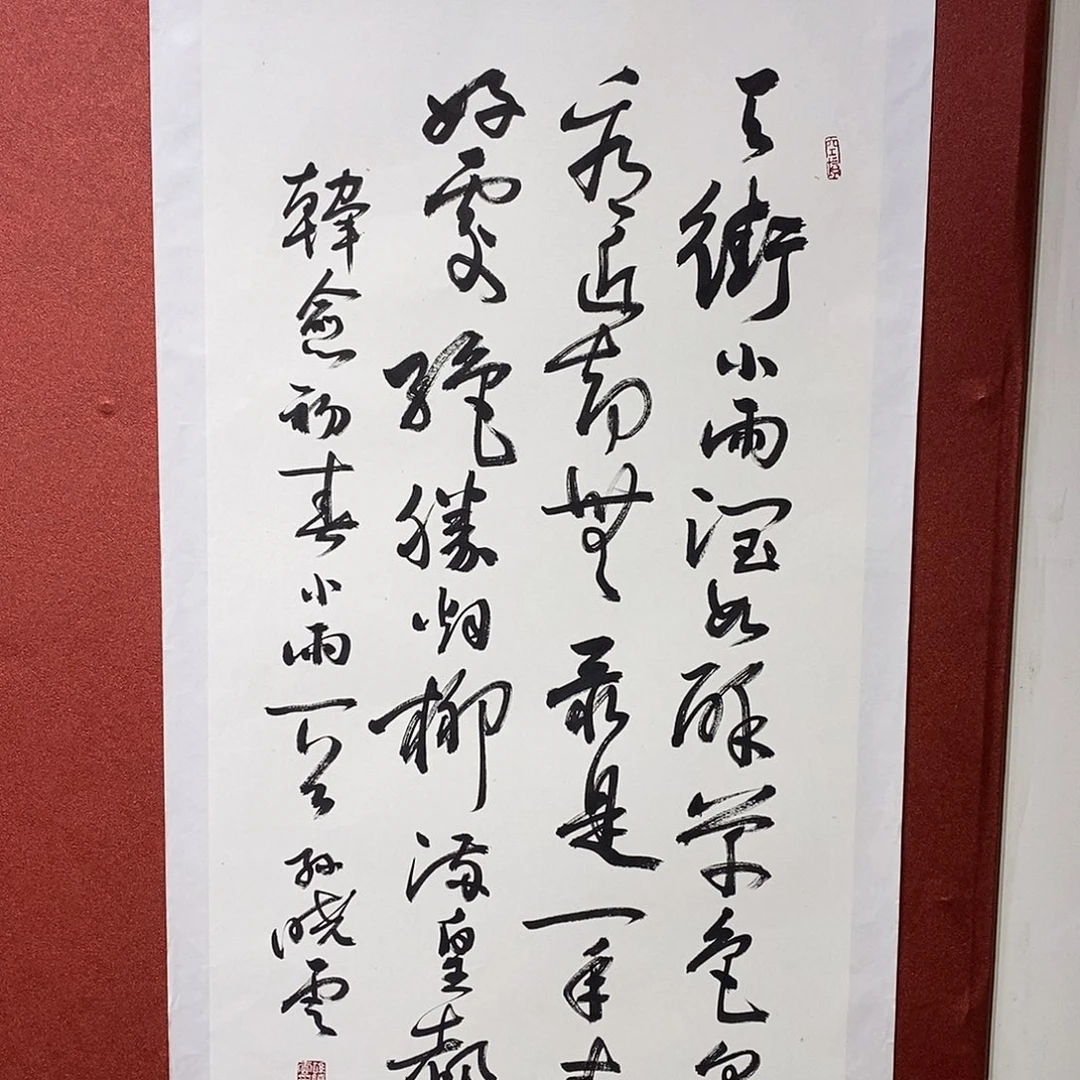 天街小雨潤如酥草色
看近却無最是一年春
好處絕勝烟柳滿皇都
韓愈初春小雨一首 孫曉雲